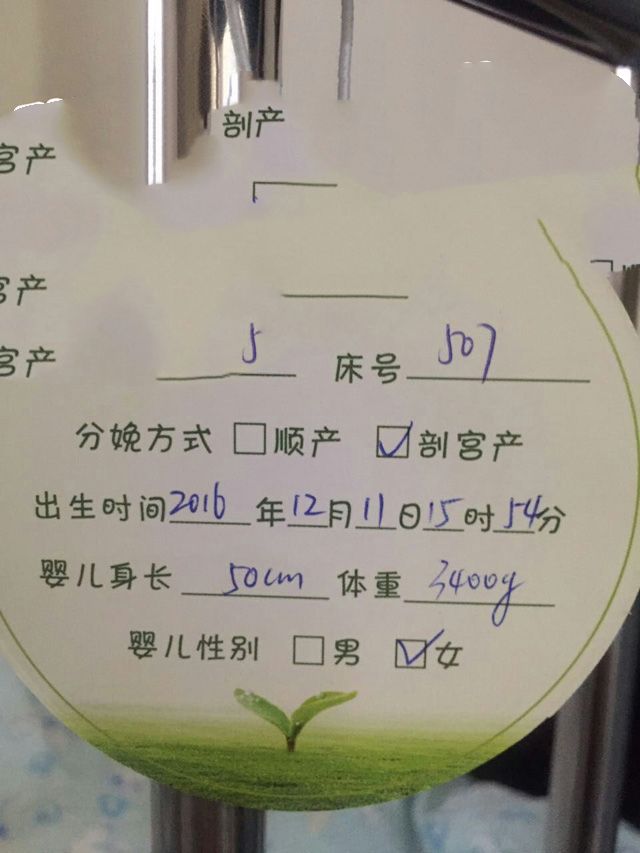 剖产
宫产
宫产
宫产 5 床号 507
分娩方式 □顺产 ☑剖宫产
出生时间2016年12月11日15时54分
婴儿身长 50cm 体重 3400g
婴儿性别 □男 ☑女